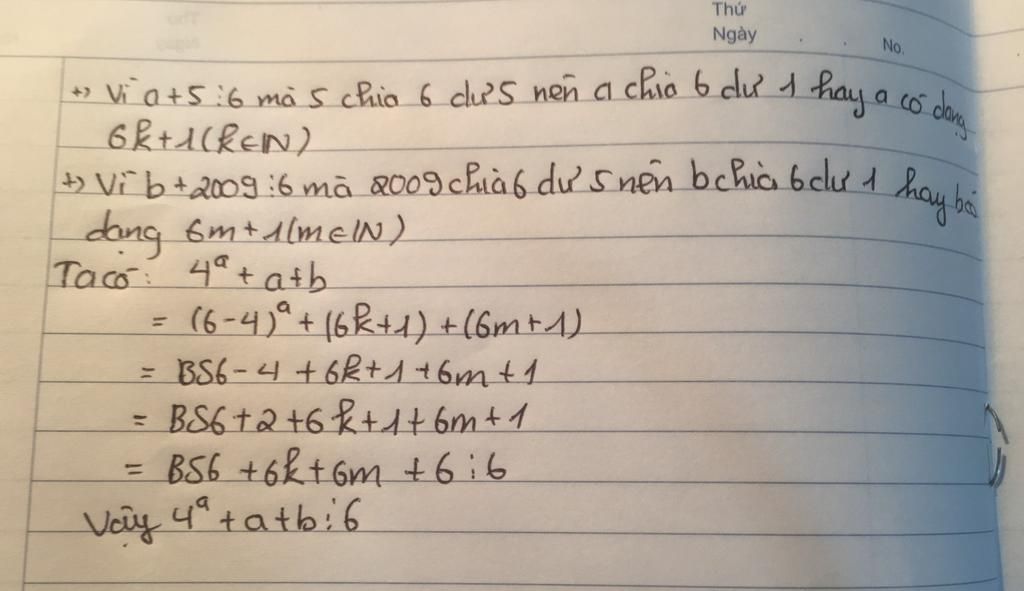 Thứ
Ngày . . No.
+) Vì a+5⋮6 mà 5 chia 6 dư 5 nên a chia 6 dư 1 hay a có dạng
6k+1(k∈N)
+) Vì b+2009⋮6 mà 2009 chia 6 dư 5 nên b chia 6 dư 1 hay b có
dạng 6m+1(m∈N)
Ta có: 4ᵃ + a+b
= (6-4)ᵃ + (6k+1) + (6m+1)
= BS6-4 + 6k+1+6m+1
= BS6+2+6k+1+6m+1
= BS6 +6k+6m +6⋮6
Vậy 4ᵃ+a+b⋮6